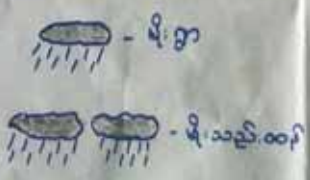 - မိုးရွာ
- မိုးသည်းထန်